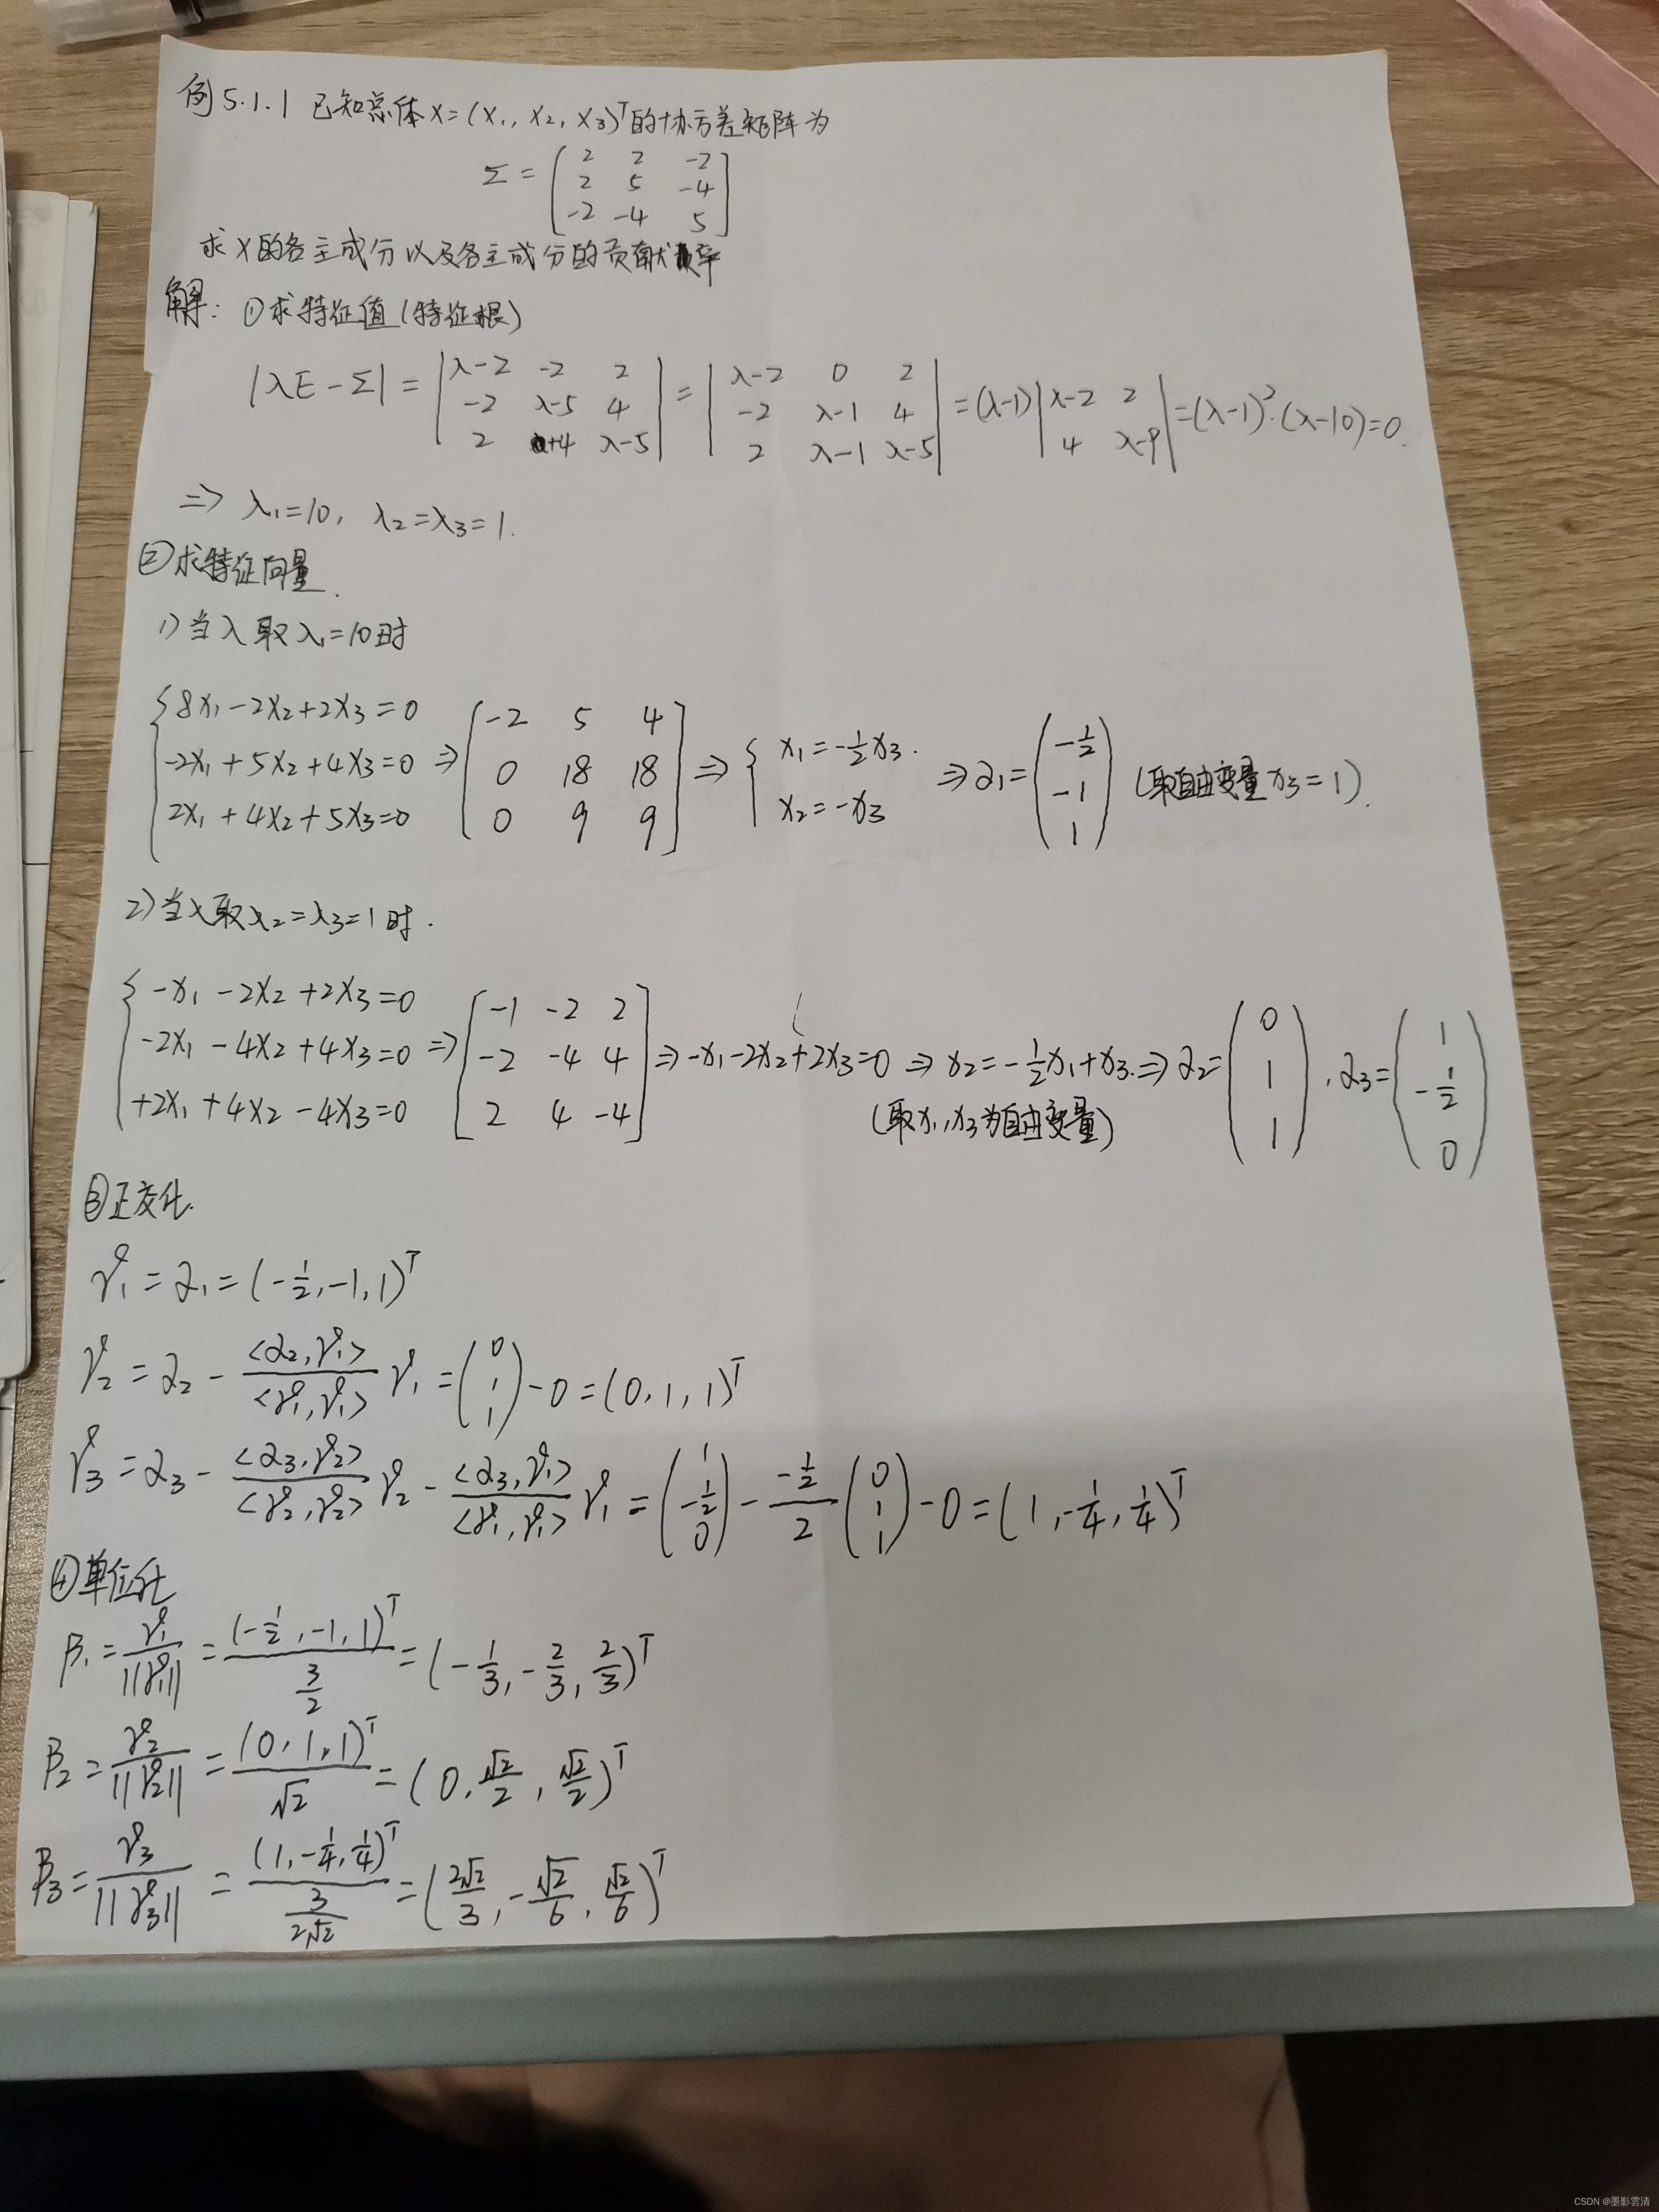 例5.1.1 已知总体X=(X₁, X₂, X₃)ᵀ的协方差矩阵为
Σ = [2 2 -2; 2 5 -4; -2 -4 5]
求X的各主成分以及各主成分的贡献率
解: ①求特征值(特征根)
|λE-Σ| = |λ-2 -2 2; -2 λ-5 4; 2 +4 λ-5| = |λ-2 0 2; -2 λ-1 4; 2 λ-1 λ-5| = (λ-1)|λ-2 2; 4 λ-9| = (λ-1)²·(λ-10)=0.
⇒ λ₁=10, λ₂=λ₃=1.
②求特征向量.
1) 当λ取λ₁=10时
{8x₁-2x₂+2x₃=0; -2x₁+5x₂+4x₃=0; 2x₁+4x₂+5x₃=0 ⇒ [-2 5 4; 0 18 18; 0 9 9] ⇒ {x₁=-½x₃. x₂=-x₃ ⇒ α₁=(-½; -1; 1) (取自由变量x₃=1).
2) 当λ取λ₂=λ₃=1时.
{-x₁-2x₂+2x₃=0; -2x₁-4x₂+4x₃=0; +2x₁+4x₂-4x₃=0 ⇒ [-1 -2 2; -2 -4 4; 2 4 -4] ⇒ -x₁-2x₂+2x₃=0 ⇒ x₂=-½x₁+x₃. ⇒ α₂=(0; 1; 1), α₃=(1; -½; 0)
(取x₁,x₃为自由变量)
③正交化.
γ₁=α₁=(-½,-1,1)ᵀ
γ₂=α₂-<α₂,γ₁>/<γ₁,γ₁> γ₁=(0; 1; 1)-0=(0,1,1)ᵀ
γ₃=α₃-<α₃,γ₂>/<γ₂,γ₂> γ₂-<α₃,γ₁>/<γ₁,γ₁> γ₁=(1; -½; 0)-(-½)/2 (0; 1; 1)-0=(1,-¼,¼)ᵀ
④单位化
β₁=γ₁/||γ₁||=(-½,-1,1)ᵀ/(3/2)=(-1/3,-2/3,2/3)ᵀ
β₂=γ₂/||γ₂||=(0,1,1)ᵀ/√2=(0,√2/2,√2/2)ᵀ
β₃=γ₃/||γ₃||=(1,-¼,¼)ᵀ/(3/(2√2))=(2√2/3,-√2/6,√2/6)ᵀ
CSDN @墨影雲清